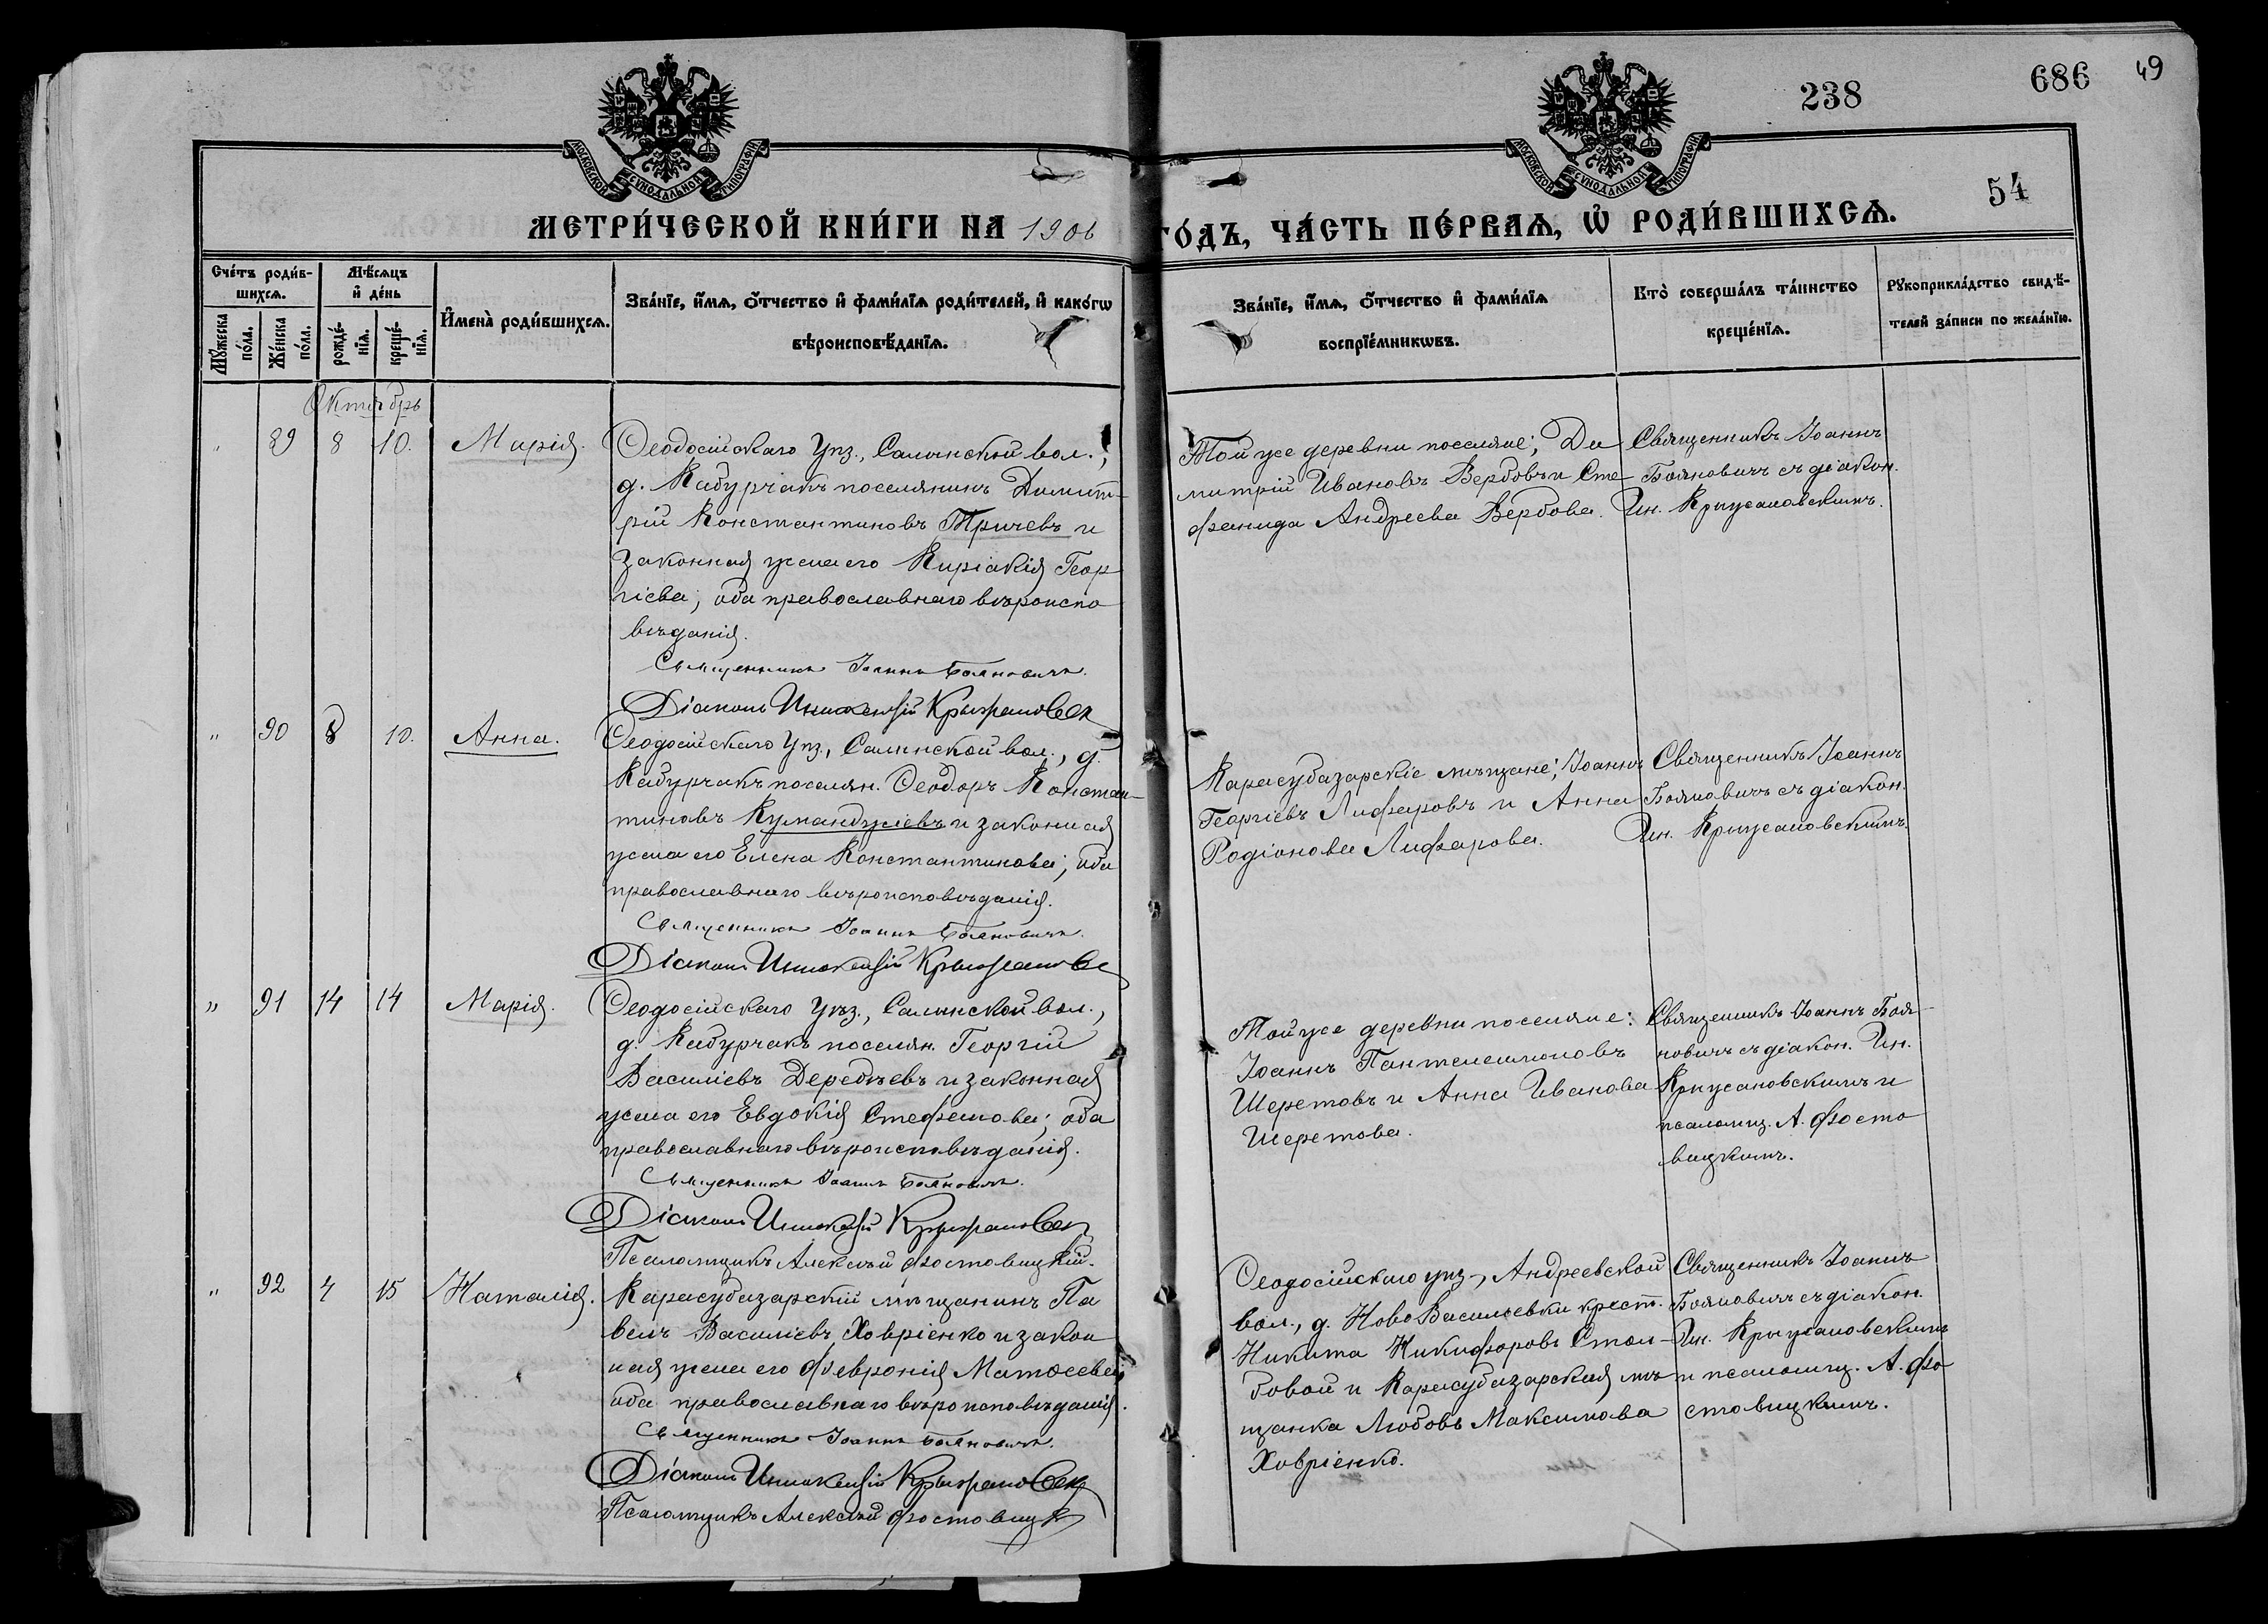 238
686
49
54
МОСКОВСКОЙ СѴНОДАЛЬНОЙ ТИПОГРАФІИ
МОСКОВСКОЙ СѴНОДАЛЬНОЙ ТИПОГРАФІИ
МЕТРИ́ЧЕСКОЙ КНИ́ГИ НА 1906
ГО́ДЪ, ЧА́СТЬ ПЕ́РВАѦ, Ѡ҆ РОДИ́ВШИХСѦ.
Сче́тъ роди́в-
шихсѧ.
Мꙋ́жеска по́ла.
Же́нска по́ла.
Мѣ́сѧцъ
и҆ де́нь
рожде́-
нїѧ.
креще́-
нїѧ.
И҆мена̀ роди́вшихсѧ.
Зва́нїе, и҆́мѧ, ѻ҆́тчество и҆ фами́лїѧ роди́телей, и҆ како́гѡ
вѣроисповѣ́данїѧ.
Зва́нїе, и҆́мѧ, ѻ҆́тчество и҆ фами́лїѧ
воспрїе́мникѡвъ.
Кто̀ соверша́лъ та́инство
креще́нїѧ.
Рꙋкоприкла́дство свидѣ́-
телей за́писи по жела́нїю.
Октябрь
" 89 8 10. Марія.
Ѳеодосійскаго уѣз., Салынской вол.,
д. Кабурчакъ поселянинъ Димит-
рій Константиновъ Тричевъ и
законная жена его Киріакія Геор
гіева; оба православнаго вѣроиспо
вѣданія.
Священникъ Іоаннъ Бояновичъ.
Діаконъ Иннокентій
Той же деревни поселяне; Ди
митрій Ивановъ Вербовъ и Сте
фанида Андреева Вербова.
Священникъ Іоаннъ
Бояновичъ съ діакон.
Ин. Крыжановскимъ.
" 90 8 10. Анна.
Ѳеодосійскаго уѣз., Салынской вол., д.
Кабурчакъ поселян. Ѳеодоръ Констан-
тиновъ Куманджіевъ и законная
жена его Елена Константинова; оба
православнаго вѣроисповѣданія.
Священникъ Іоаннъ Бояновичъ.
Діаконъ Иннокентій
Карасубазарскіе мѣщане; Іоаннъ
Георгіевъ Лифаровъ и Анна
Родіонова Лифарова.
Священникъ Іоаннъ
Бояновичъ съ діакон.
Ин. Крыжановскимъ.
" 91 14 14 Марія.
Ѳеодосійскаго уѣз., Салынской вол.,
д. Кабурчакъ поселян. Георгій
Василіевъ Деребѣевъ и законная
жена его Евдокія Стефанова; оба
православнаго вѣроисповѣданія.
Священникъ Іоаннъ Бояновичъ.
Діаконъ Иннокентій
Псаломщикъ Алексѣй Фостовицкій.
Той же деревни поселяне:
Іоаннъ Пантелеимоновъ
Шеретовъ и Анна Иванова
Шеретова.
Священникъ Іоаннъ Боя-
новичъ съ діакон. Ин.
Крыжановскимъ и
псаломщ. А. Фосто
вицкимъ.
" 92 4 15 Наталія.
Карасубазарскій мѣщанинъ Па
велъ Василіевъ Ховріенко и закон
ная жена его Февронія Матѳеева;
оба православнаго вѣроисповѣданія.
Священникъ Іоаннъ Бояновичъ.
Діаконъ Иннокентій
Псаломщикъ Алексѣй Фостовицк
Ѳеодосійскаго уѣз., Андреевской
вол., д. НовоВасильевки крест.
Никита Никифоровъ Стол-
бовой и Карасубазарская мѣ
щанка Любовь Максимова
Ховріенко.
Священникъ Іоаннъ
Бояновичъ съ діакон.
Ин. Крыжановскимъ
и псаломщ. А. Фо
стовицкимъ.